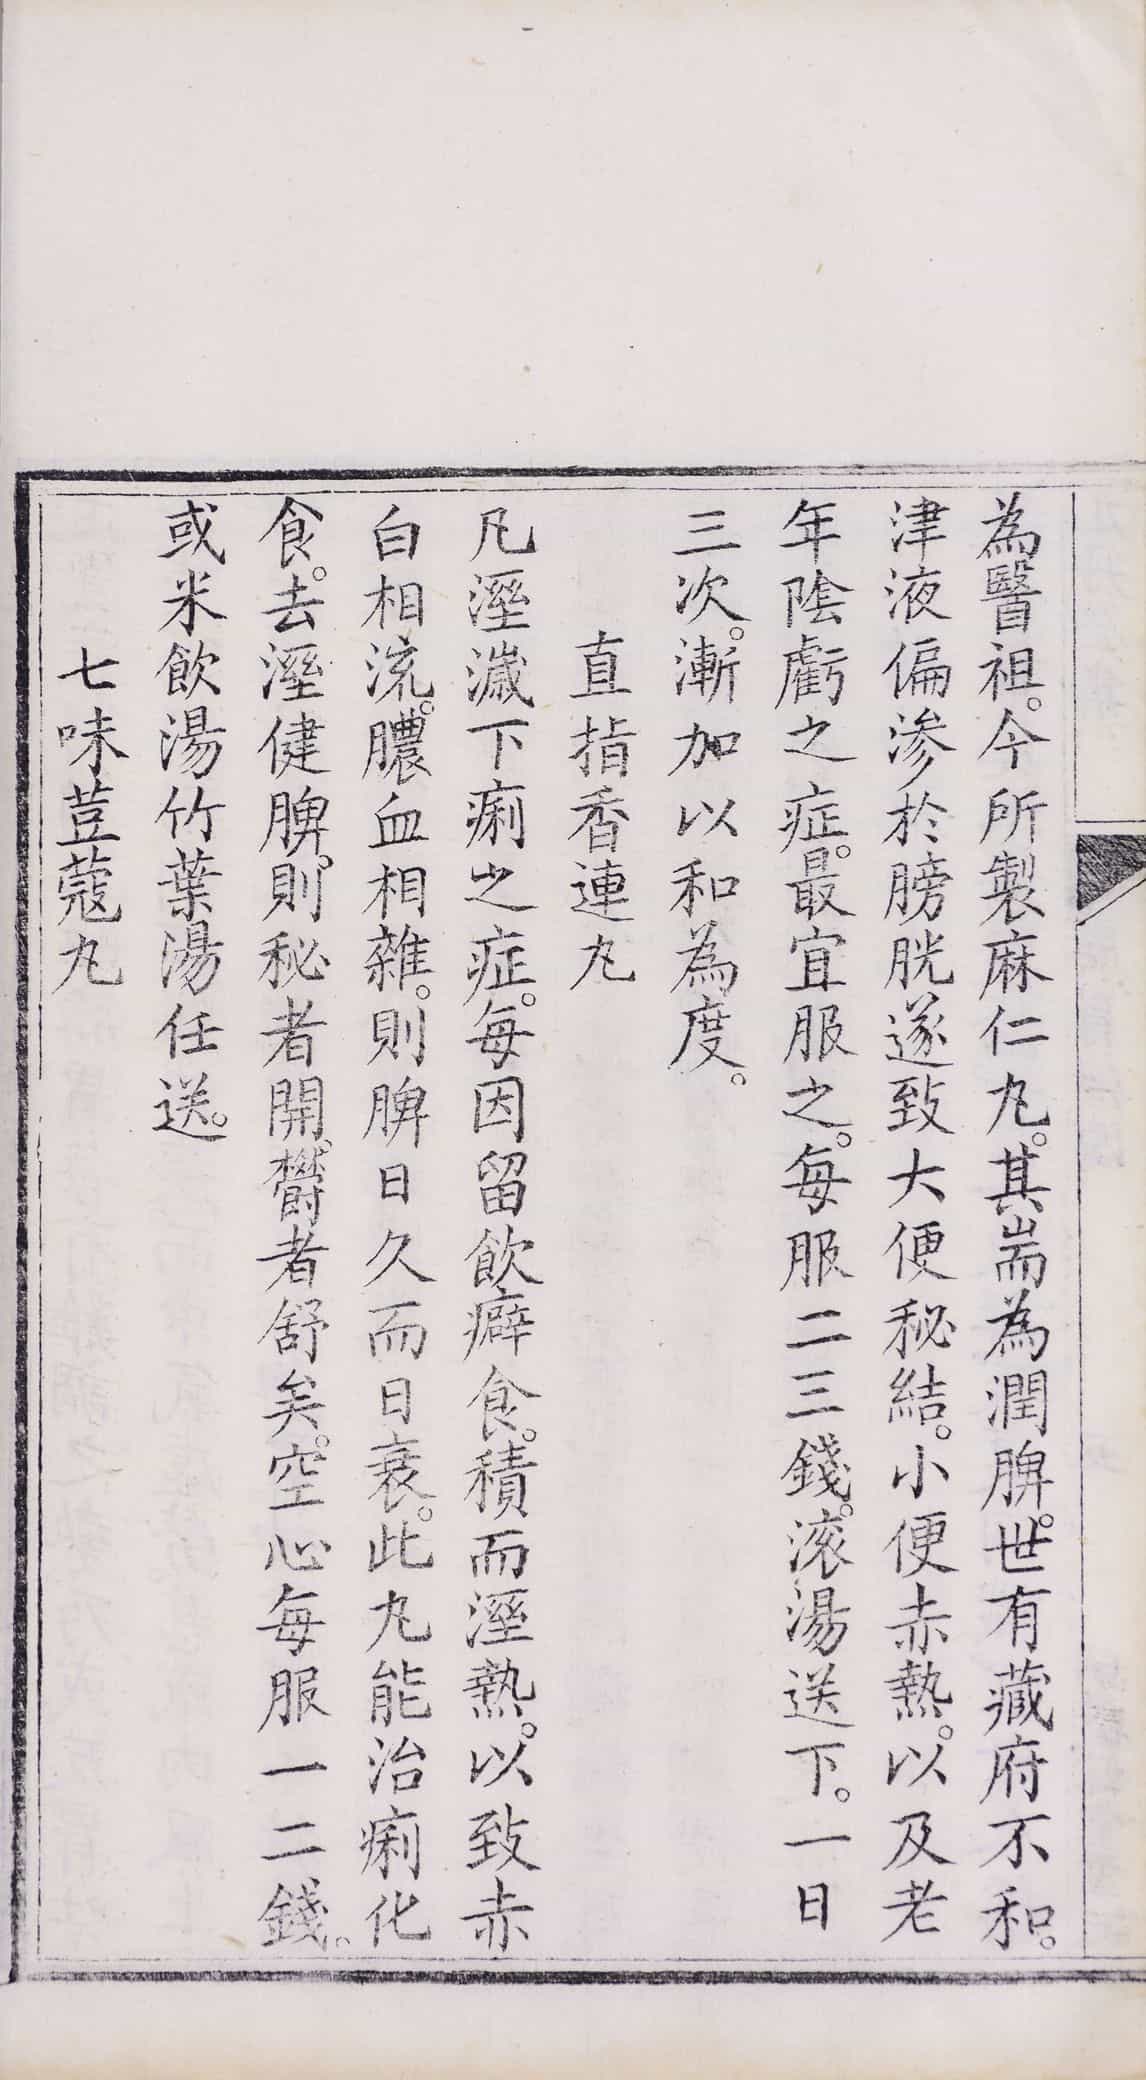 為醫祖。今所製麻仁丸。其耑為潤脾。世有藏府不和。
津液偏滲於膀胱遂致大便秘結。小便赤熱。以及老
年陰虧之症。最宜服之。每服二三錢。滾湯送下。一日
三次。漸加以和為度。
直指香連丸
凡溼濊下痢之症。每因留飲癖食。積而溼熱。以致赤
白相流。膿血相雜。則脾日久而日衰。此丸能治痢化
食。去溼健脾。則秘者開。欝者舒矣。空心每服一二錢。
或米飲湯竹葉湯任送。
七味荳蔻丸